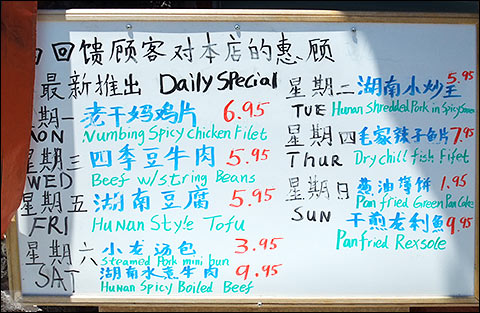 回馈顾客对本店的惠顾
最新推出 Daily Special
星期一 老干妈鸡片 6.95
MON Numbing Spicy Chicken Filet
星期三 四季豆牛肉 5.95
WED Beef w/string Beans
星期五 湖南豆腐 5.95
FRI HuNan Style Tofu
星期六 小龙汤包 3.95
SAT Steamed Pork mini bun
湖南水煮牛肉 9.95
HuNan Spicy Boiled Beef
星期二 湖南小炒王 5.95
TUE Hunan Shredded Pork in Spicy Sauce
星期四 毛家辣子鱼片 7.95
Thur Dry chili fish Filet
星期日 葱油薄饼 1.95
SUN Pan fried Green Pan Cake
干煎龙利鱼 9.95
Panfried Rexsole